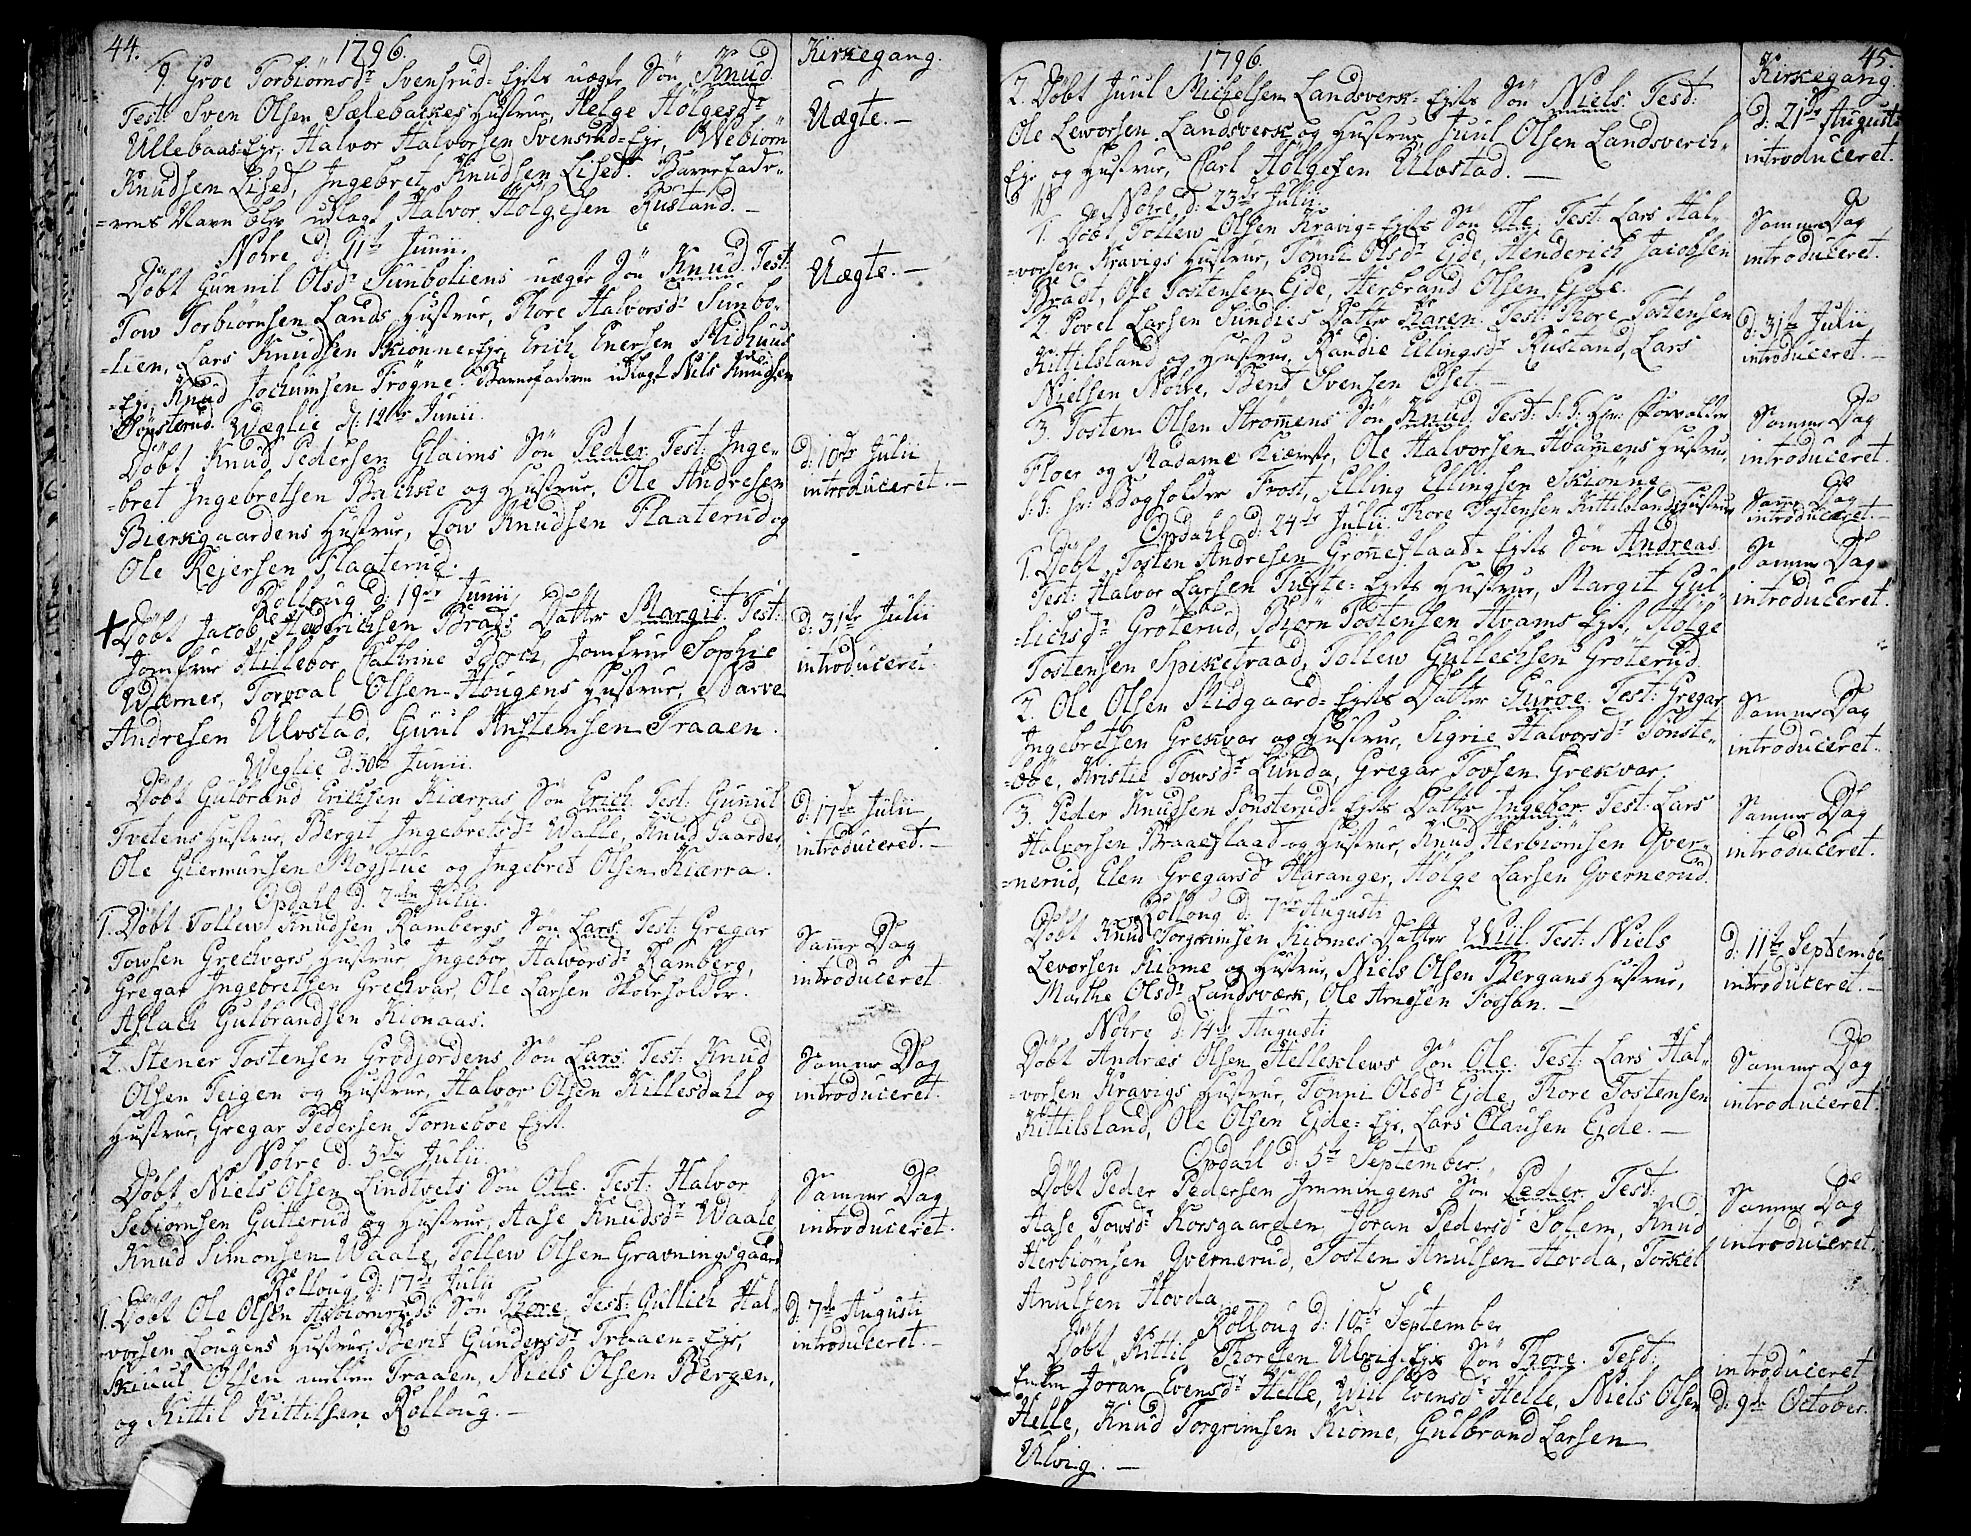 44.
1796.
Kirkegang.
9. Groe Torbiørnsdr Svensrud-Ejets uægte Søn Knud.
Test: Sven Olsen Sælebakkes Hustrue, Helge Hølgesdr
Ullebaas-Eje, Halvor Halvorsen Svensrud-Eje, Webiørn
Knudsen Lised, Ingebret Knudsen Lised. Barnefade-
=rens Navn blev udlagt Halvor Holgesen Rustand.
Uægte.
Nohre d: 11te Junii.
Døbt Gunnil Olsdr Sunboliens uægte Søn Knud. Test:
Tow Torbiørnsen Lands Hustrue, Thore Halvorsdr Sunbo-
=lien, Lars Knudsen Skiønne-Eje, Erich Enersen Midhuus
=Eje, Knud Jochumsen Trøgne. Barnefaderen udlagt Nils Knudsen
Sønsterud.
Uægte.
Weglie d: 12te Junii.
Døbt Knud Pedersen Glaims Søn Peder. Test: Inge-
=bret Ingebretsen Bachke og Hustrue, Ole Andresen
Bierkgaardens Hustrue, Tow Knudsen Plaaterud og
Ole Rejersen Plaaterud.
d: 10de Julii
introduceret.
Rolloug d: 19de Junii
Døbt Jacob Hendrichsen Brags Datter Margit. Test:
Jomfrue Hillebor Cathrine Bloch, Jomfrue Sophie
Wærner, Torval Olsen-Hougens Hustrue, Narve
Andresen Ulvstad, Guul Anstensen Traaen.
d: 31te Julii
introduceret.
Weglie d: 30te Junii.
Døbt Gulbrand Erichsen Kiærras Søn Erich. Test: Gunnul
Tvetens Hustrue, Bergit Ingebretsdr Walle, Knud Gaarder,
Ole Giermunsen Mogstue og Ingebret Olsen Kiærra.
d: 17de Julii
introduceret.
Opdahl d. 2den Julii.
1. Døbt Tollew Knudsen Rambergs Søn Lars. Test: Gregar
Towsen Grechvars Hustrue Ingebor Halvorsdr Ramberg,
Gregar Ingebretsen Grechvar, Ole Larsen Skoleholder.
Aslach Gulbrandsen Kionaas.
Same Dag
introduceret.
2. Stener Tostensen Grodjordens Søn Lars. Test: Knud
Olsen Teigen og Hustrue, Halvor Olsen Killesdahl og
Hustrue, Gregar Pedersen Torneböe Ejet.
Samme Dag
introduceret.
Nohre d. 3die Julii.
Døbt Niels Olsen Lindtvets Søn Ole. Test: Halvor
Sebiørnsen Gutterud og Hustrue, Aase Knudsdr Waale,
Knud Simonsen Waale, Tollew Olsen Gravningsgaard
Samme Dag
introduceret.
Rolloug d: 17de Julii
1. Døbt Ole Olsen Asbiørnruds Søn Thore. Test: Gullich Hal-
=vorsen Lougens Hustrue, Berit Gundersdr Traaen-Eje,
Skiuul Olsen mellem Traaen, Niels Olsen Bergen,
og Kittil Kittilsen Rolloug.
d: 7de Augusti
introduceret.
1796.
45.
Kirkegang.
2. Døbt Juul Michelsen Landsverk-Ejets Søn Niels. Test:
Ole Leworsen Landsverk og Hustrue, Juul Olsen Landsverch-
Eje og Hustrue, Carl Holgesen Ulvstad.
d: 21de Augusti
introduceret.
Nohre d: 23de Julii.
1. Døbt Tollew Olsen Kravig-Ejets Søn Ole. Test: Lars Hal-
=vorsen Kravigs Hustrue, Tønni Olsdr Ejde, Henderich Jacobsen
Bradt, Ole Tostensen Ejde, Herbrand Olsen Ejde.
Samme Dag
introduceret.
2. Povel Larsen Sundres Datter Karen. Test: Thore Tostensen
Kittilsland og Hustrue, Randie Ellingsdr Rustand, Lars
Nielsen Nohre, Bend Svensen Øset.
d: 31te Julii
introduceret.
3. Tosten Olsen Strømens Søn Knud. Test: S: T: Hr: Forvalter
Floer og Madame Kierulf, Ole Halvorsen Hvamens Hustrue,
S: T: Hr: Bogholder Frost, Elling Ellingsen Skiønne.
Samme Dag
introduceret.
Opdahl d: 24de Julii. Thore Tostensen Kittilslands Hustrue
Same Dag
introduceret.
1. Døbt Tosten Andresen Grøneflaat-Ejets Søn Andreas
Test: Halvor Larsen Tufte-Ejets Hustrue, Margit Gul-
=lichsdr Grøterud, Biørn Tostensen Hvams Ejet, Hølge
Tostensen Spiketraad, Tollew Gullechsen Grøterud.
Samme Dag
introduceret.
2. Ole Olsen Midgaard-Ejets Datter Guroe. Test: Gregar
Ingebretsen Grekvar og Hustrue, Sigrie Halvorsdr Tønste-
=böe, Kristie Towsdr Lunda, Gregar Tovsen Grekvar.
Samme Dag
introduceret.
3. Peder Knudsen Sønsterud-Ejets Datter Ingebor. Test: Lars
Halvorsen Braaeflaad og Hustrue, Knud Herbiørnsen Gver-
=nerud, Elen Gregarsdr Haranger, Hølge Larsen Gvernerud.
Samme Dag
introduceret.
Rolloug d: 7de Augusti
Døbt Knud Torgrimsen Kiomes Datter Wiil. Test: Niels
Levorsen Kiome og Hustrue, Niels Olsen Bergans Hustrue,
Marthe Olsdr Landsværk, Ole Arnesen Fossan.
d: 11te September
introduceret.
Nohre d: 14de Augusti
Døbt Andræs Olsen Helleklews Søn Ole. Test: Lars Hal-
=vorsen Kravigs Hustrue, Tønni Olsdr Ejde, Thore Tostensen
Kittilsland, Ole Olsen Ejde-Eje, Lars Clausen Ejde.
Samme Dag
introduceret.
Opdahl d: 5te September.
Døbt Peder Pedersen Immingens Søn Peder. Test.
Aase Towsdr Korsgaarden, Joran Pedersdr Solem, Knud
Herbiørnsen Gvernerud, Tosten Anulsen Hovda, Torkel
Anulsen Hovda
Samme Dag
introduceret.
Rolloug d: 10de September
Døbt Kittil Thoresen Ulvig-Ejets Søn Thore. Test.
Enken Joran Evensdr Helle, Wiil Evensdr Helle, Niels Olsen
Helle, Knud Torgrimsen Kiome, Gulbrand Larsen
Ulvig.
introduceret
d: 9de October.